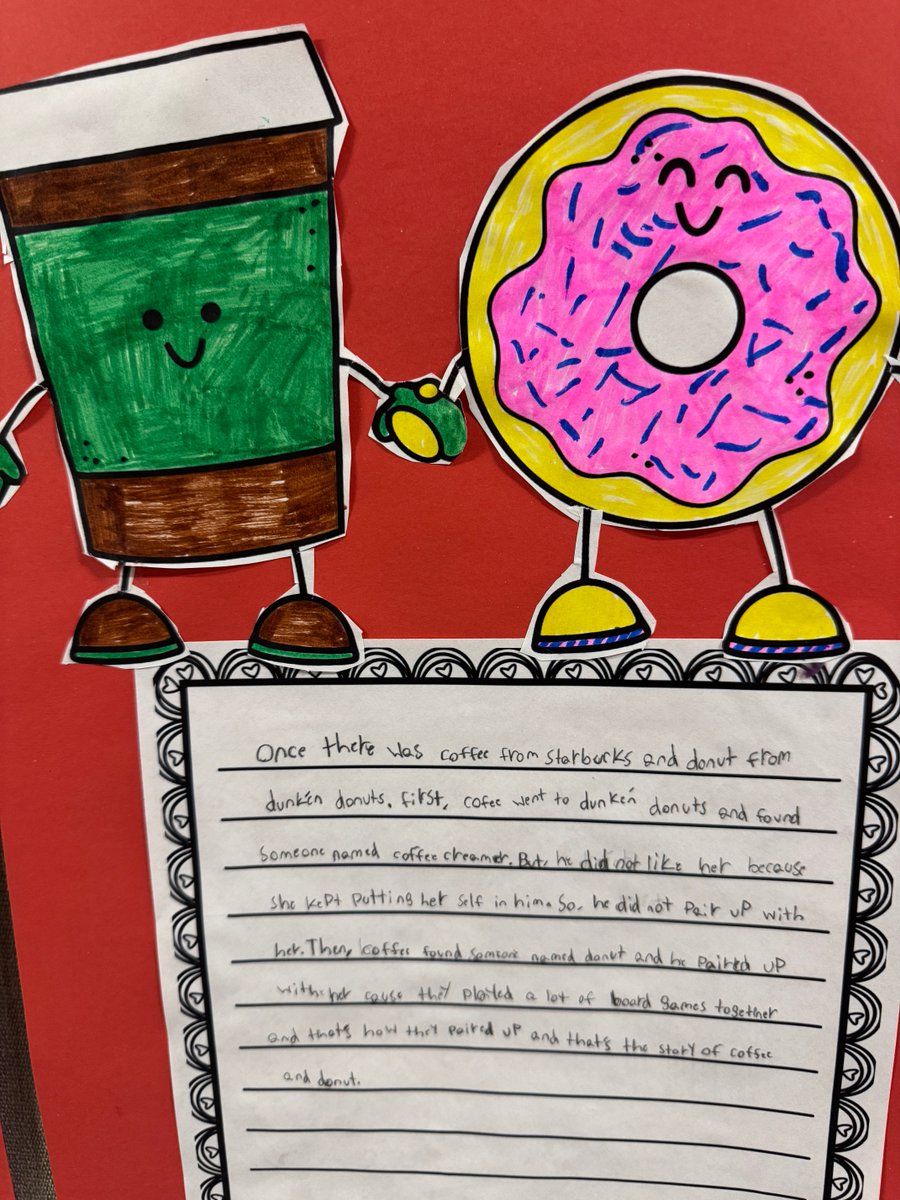 Once there was coffee from starbucks and donut from
dunkén donuts. first, cofee went to dunkén donuts and found
someone named coffee creamer. But, he did not like her because
she kept putting her self in him. So, he did not pair up with
her. Then, coffee found someone named donut and he paired up
with her cause they played a lot of board games together
and that's how they paired up and that's the story of coffee
and donut.